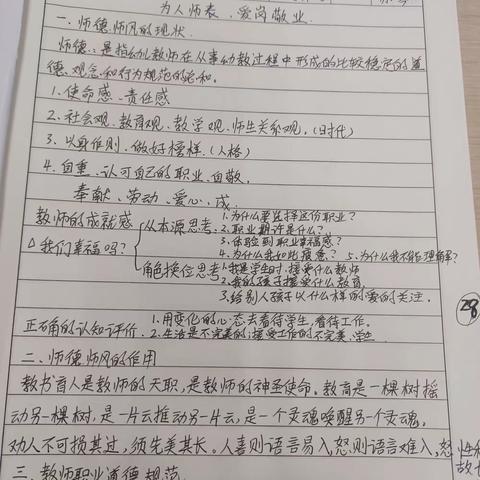 为人师表、爱岗敬业
一、师德师风的现状
师德:是指幼儿教师在从事幼教过程中形成的比较稳定的道
德、观念和行为规范的总和。
1.使命感、责任感
2.社会观、教育观、教学观、师生关系观。(时代)
3.以身作则、做好榜样。(人格)
4.自重、认可自己的职业、自敬。
奉献、劳动、爱心、成
教师的成就感
△我们幸福吗?
从本源思考
1.为什么要选择这份职业?
2.职业期许是什么?
3.体验到职业幸福感?
4.为什么我如此疲惫?
5.为什么我不能被理解?
角色换位思考
1.我是学生时,接受什么教师
2.我的孩子接受什么教育
3.给别人孩子以什么样的爱的关注。
正确的认知评价
1.用变化的心态去看待学生,看待工作。
2.生活是不完美的,接受工作的不完美、学生
二、师德师风的作用
教书育人是教师的天职,是教师的神圣使命。教育是一棵树摇
动另一棵树,是一片云推动另一片云,是一个灵魂唤醒另一个灵魂。
劝人不可损其过,须先美其长。人喜则语言易入,怒则语言难入,怒
三、教师职业道德规范
28